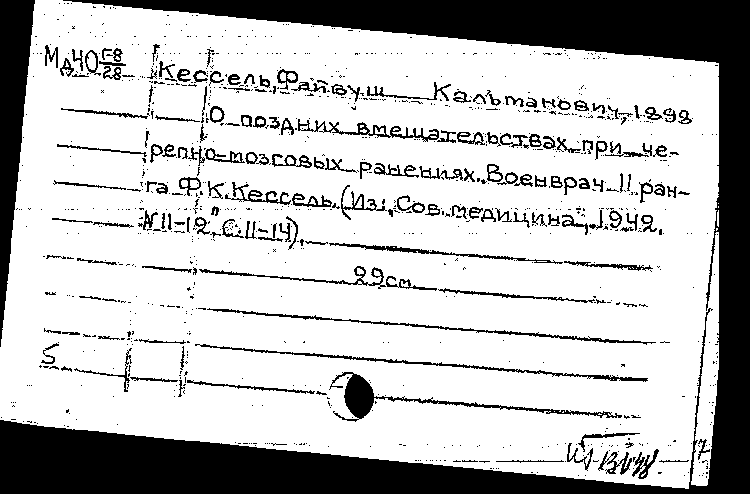 Мд40 Г-8/28 Кессель, Файвуш Кальманович, 1898
О поздних вмешательствах при че-
репно-мозговых ранениях. Военврач II ран-
га Ф.К.Кессель. (Из: „Сов. медицина", 1942.
№11-12" С.11-14).
29см
S